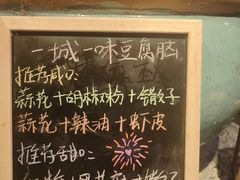 一城一味豆腐脑
推荐咸心:
蒜花+胡椒粉+馓子
蒜花+辣油+虾皮
推荐甜心: